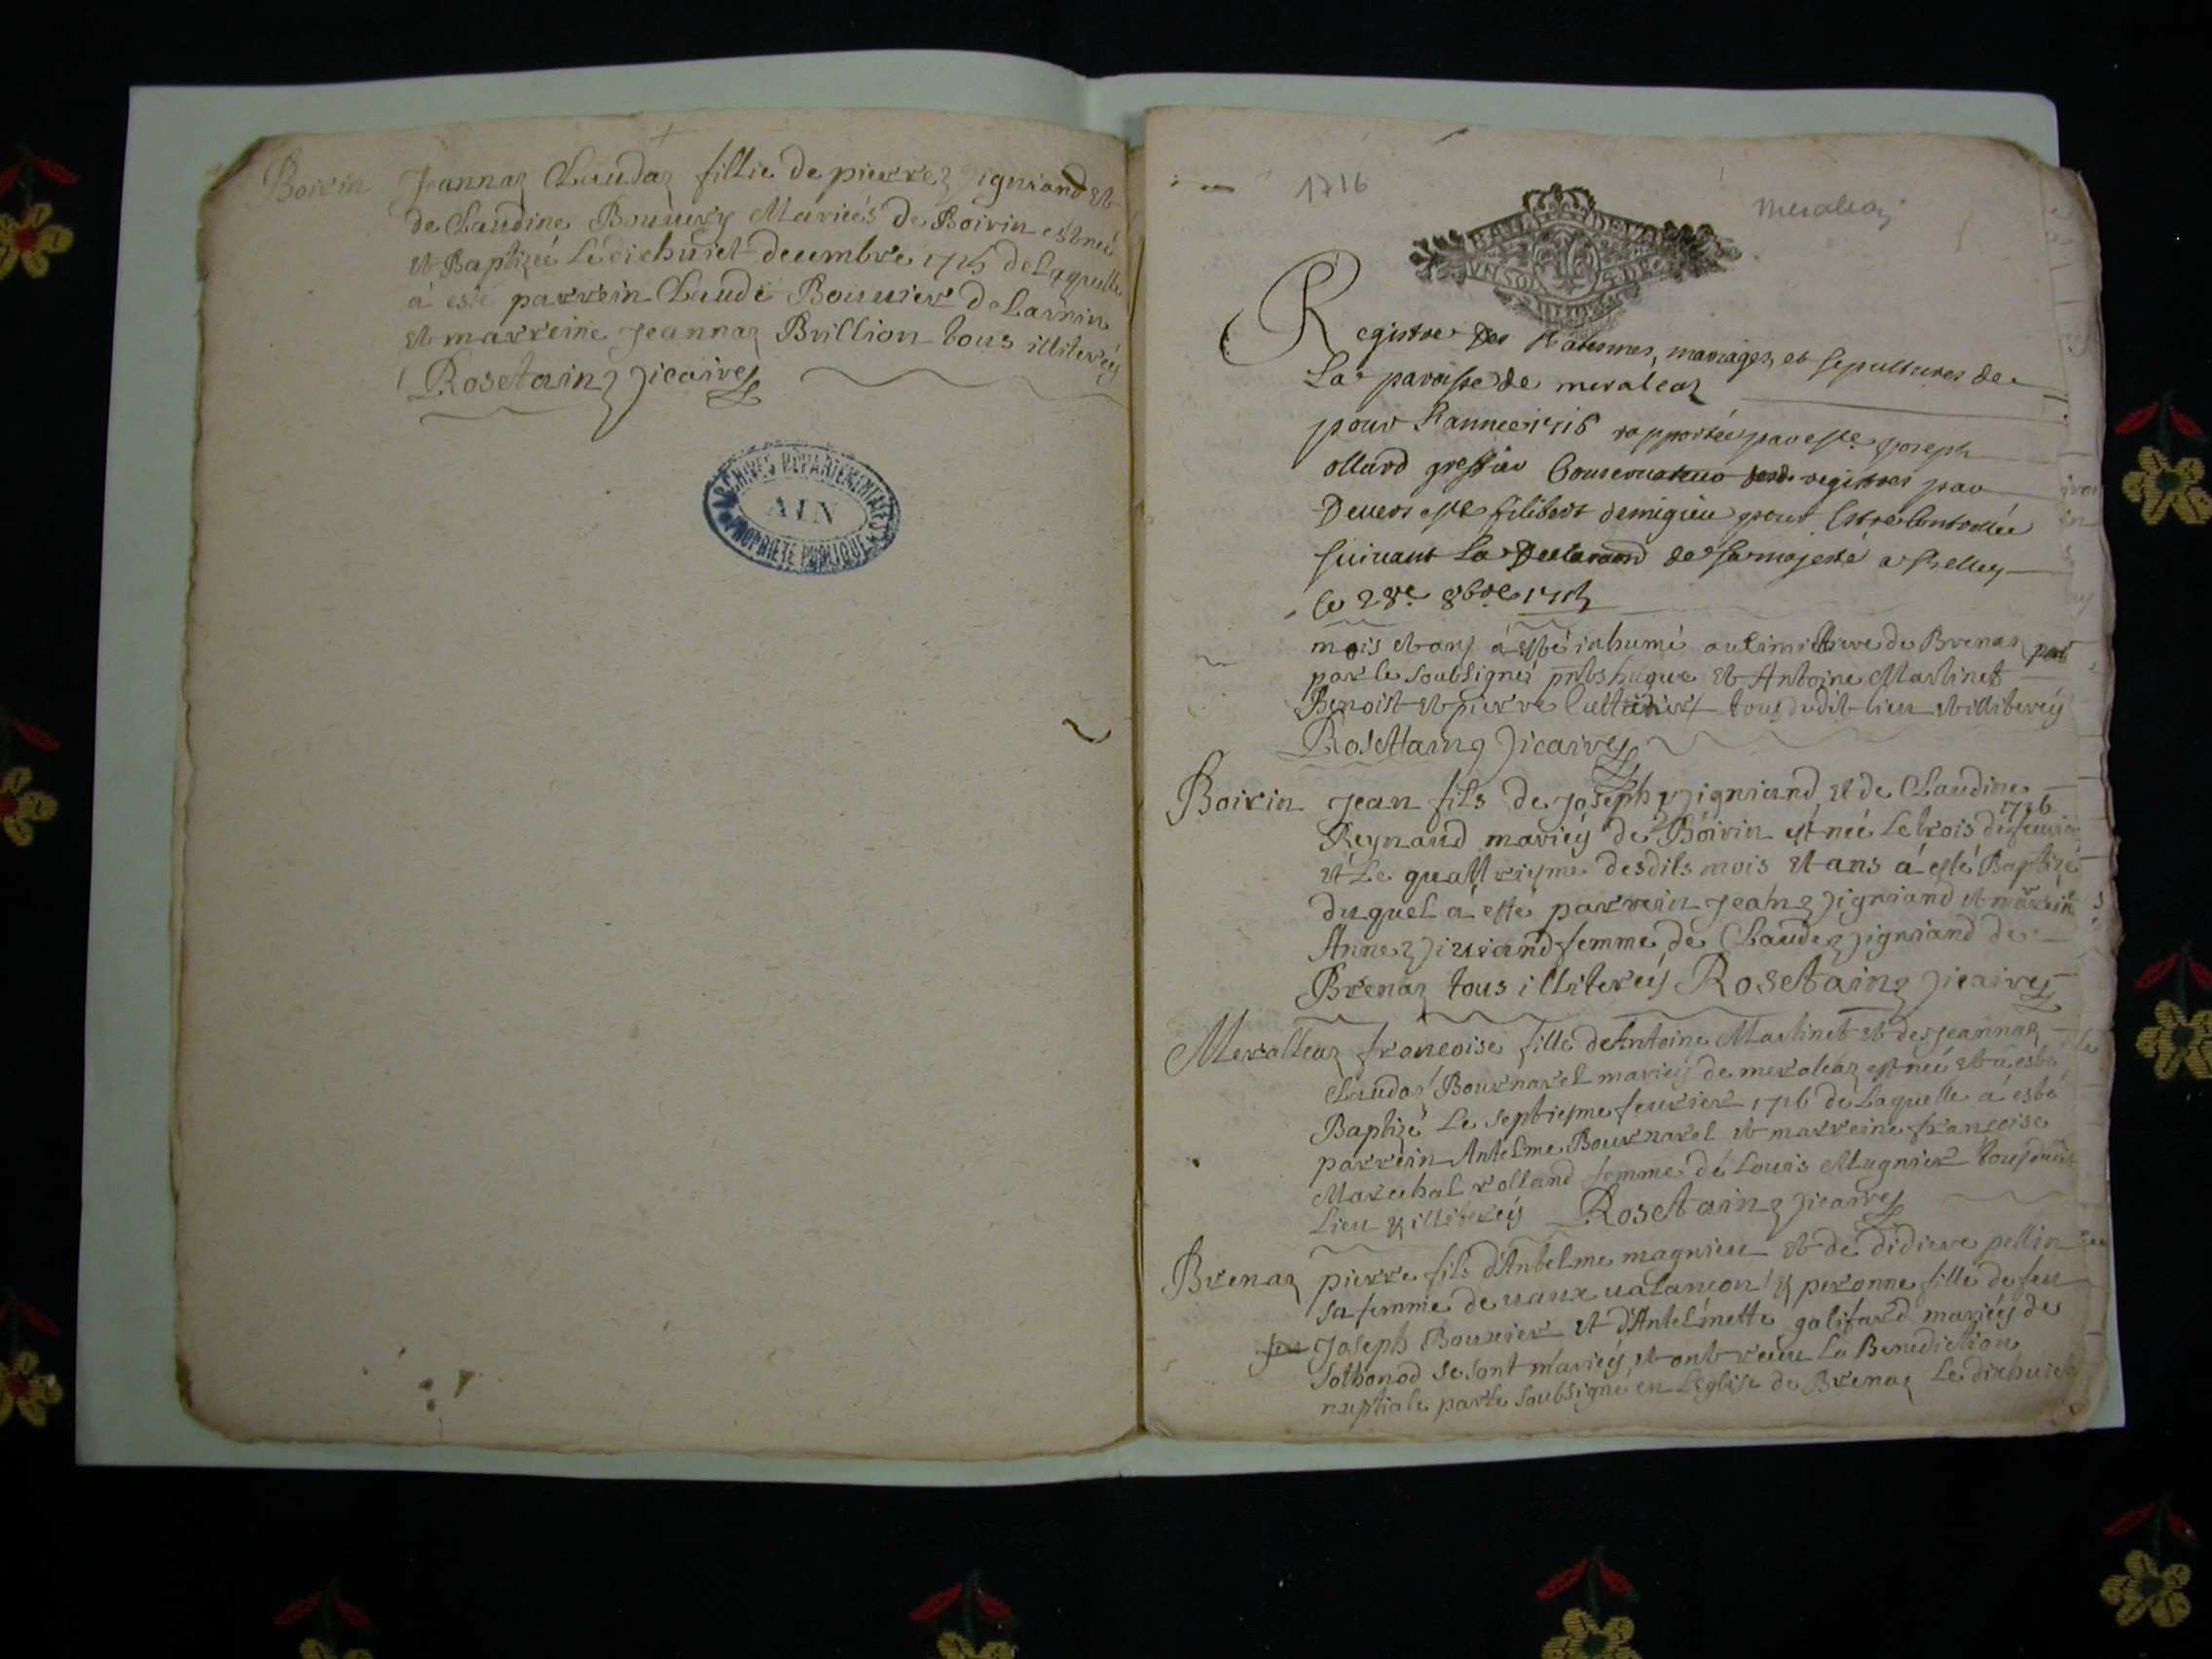 Boirin Jeannaz Claudaz fillie de pierre Vigniand et
de Claudine Bouuery Mariés de Boirin est née
et Baptizée Le dixhuict decembre 1715 de Laquelle
à esté parrein Claude Bouuier de Larnin
et marreine Jeannaz Brillion tous illiterés
Rosetain Vicaire
ARCHIVES DÉPARTEMENTALES
AIN
PROPRIÉTÉ PUBLIQUE
1716
meraleaz
Registre des Batesmes, mariages et sepultures de
La paroisse de meraleaz
pour L'annee 1716 rapportée par Joseph
ollard greffier Conservateur des registres par
Devers filibert demigieu pour Estre Controllée
suivant La Declaraond de sa majesté a Belley
Ce 28e 8bre 1715
mois et ans à esté inhumé au Cimittiere de Brenaz
par le soubsigné pnts hugue et Antoine Martinet
Benoist et pierre tous dudit lieu et illiterés
Rosettain Vicaire
Boirin Jean fils de Joseph Vigniand et de Claudine
1716
Reynaud mariés de Boirin est née Le trois de feurier
et Le quattriesme desdits mois et ans à esté Baptizé
duquel à esté parrein Jean Vigniand et marrein
Anne femme de Claude Vigniand de
Brenaz tous illiterés Rosetain Vicaire
Meralleaz francoise fille de Antoine Martinet et de Jeannaz
Claudaz Bournarel mariés de meraleaz est née et à esté
Baptizé Le septiesme feurier 1716 de Laquelle à esté
parrein Antelme Bournarel et marreine françoise
Marechal rolland femme de Louis Mugnier tous dudit
Lieu & illiterés Rosetain Vicaire
Brenaz pierre fils d'Antelme magnieu et de didiere pellin
sa femme de uaux ualancon & peronne fille de feu
feu Joseph Bouuier et d'Antelmette galifard mariés de
Sothonod se sont mariés et ont receu La Benediction
nuptiale par le soubsigné en L'eglise de Brenaz Le dixhuict